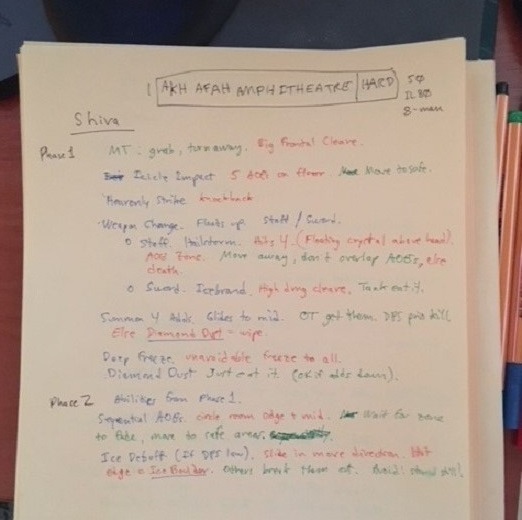 AKH AFAH AMPHITHEATRE HARD
50
8-man
Shiva
Phase 1 MT: grab, turn away. Big Frontal Cleave.
Icicle Impact 5 AOEs on floor Move to safe.
Heavenly Strike knockback
Weapon Change. Floats up. Staff / Sword.
o Staff. Hailstorm. Hits 4. (Floating crystal above head).
AOE zone. Move away, don't overlap AOEs, else
death.
o Sword. Icebrand. High dmg cleave. Tank eat it.
Summon 4 Adds. Glides to mid. OT get them. DPS prio kill
Else Diamond Dust = wipe.
Deep Freeze unavoidable freeze to all.
Diamond Dust Just eat it. (ok if adds down).
Phase 2 Abilities from Phase 1.
Sequential AOEs. circle room edge + mid. Wait for zone
to fade, move to safe areas.
Ice Debuff (If DPS low). slide in move direction. Hit
edge = Ice Boulder. Others break them out. Avoid: stand still.